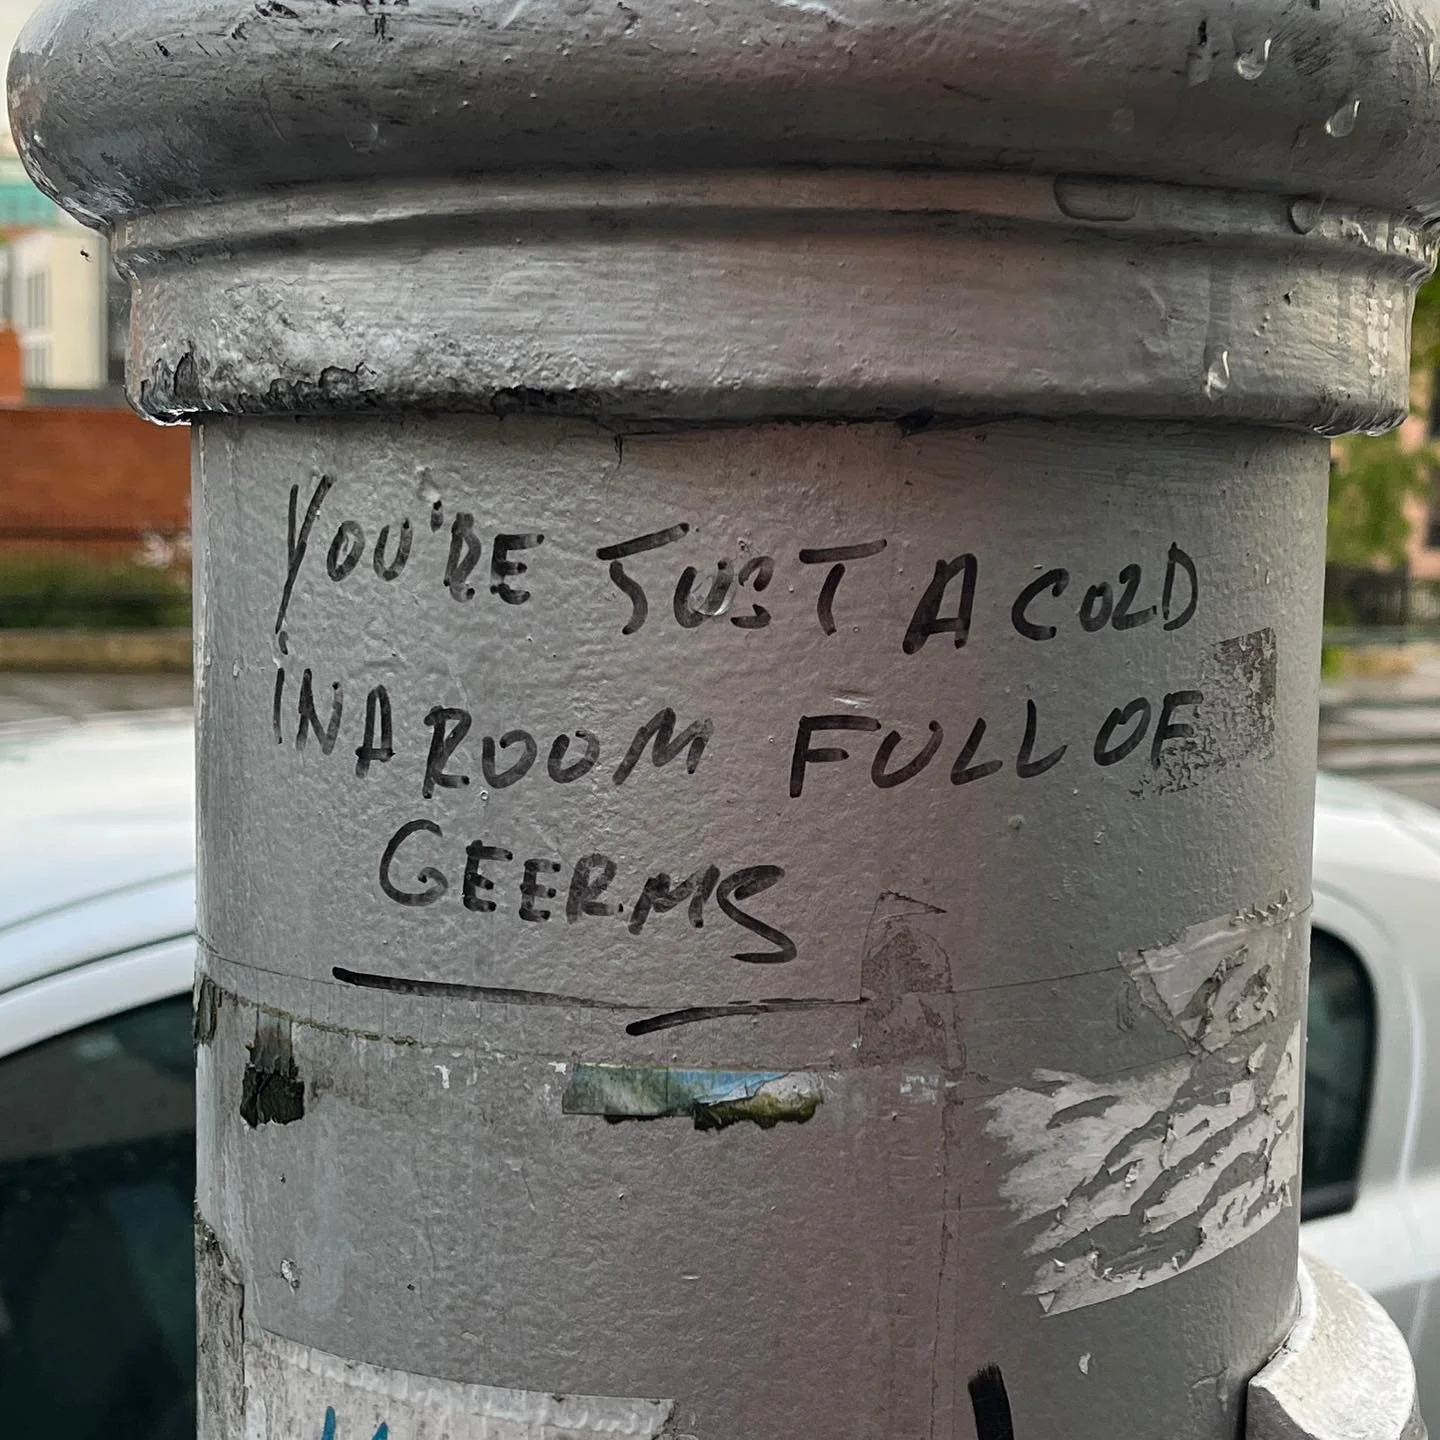 YOU'RE JUST A COLD
IN A ROOM FULL OF
GEERMS